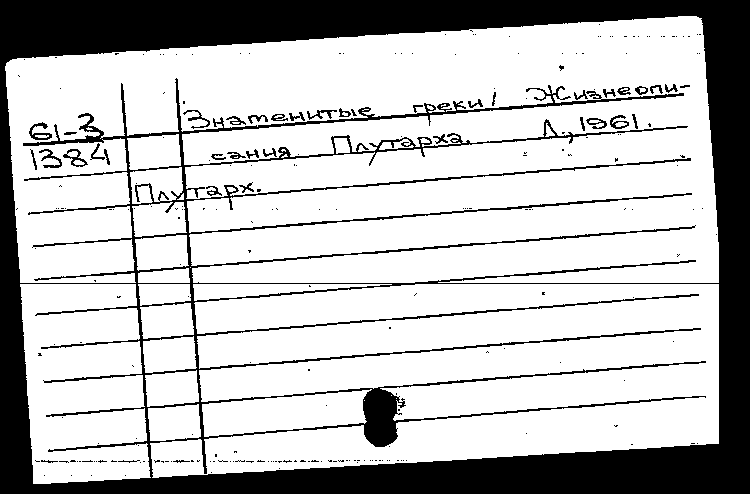 61-3
1384
Знаменитые греки / Жизнеопи-
сания Плутарха. Л., 1961.
Плутарх.